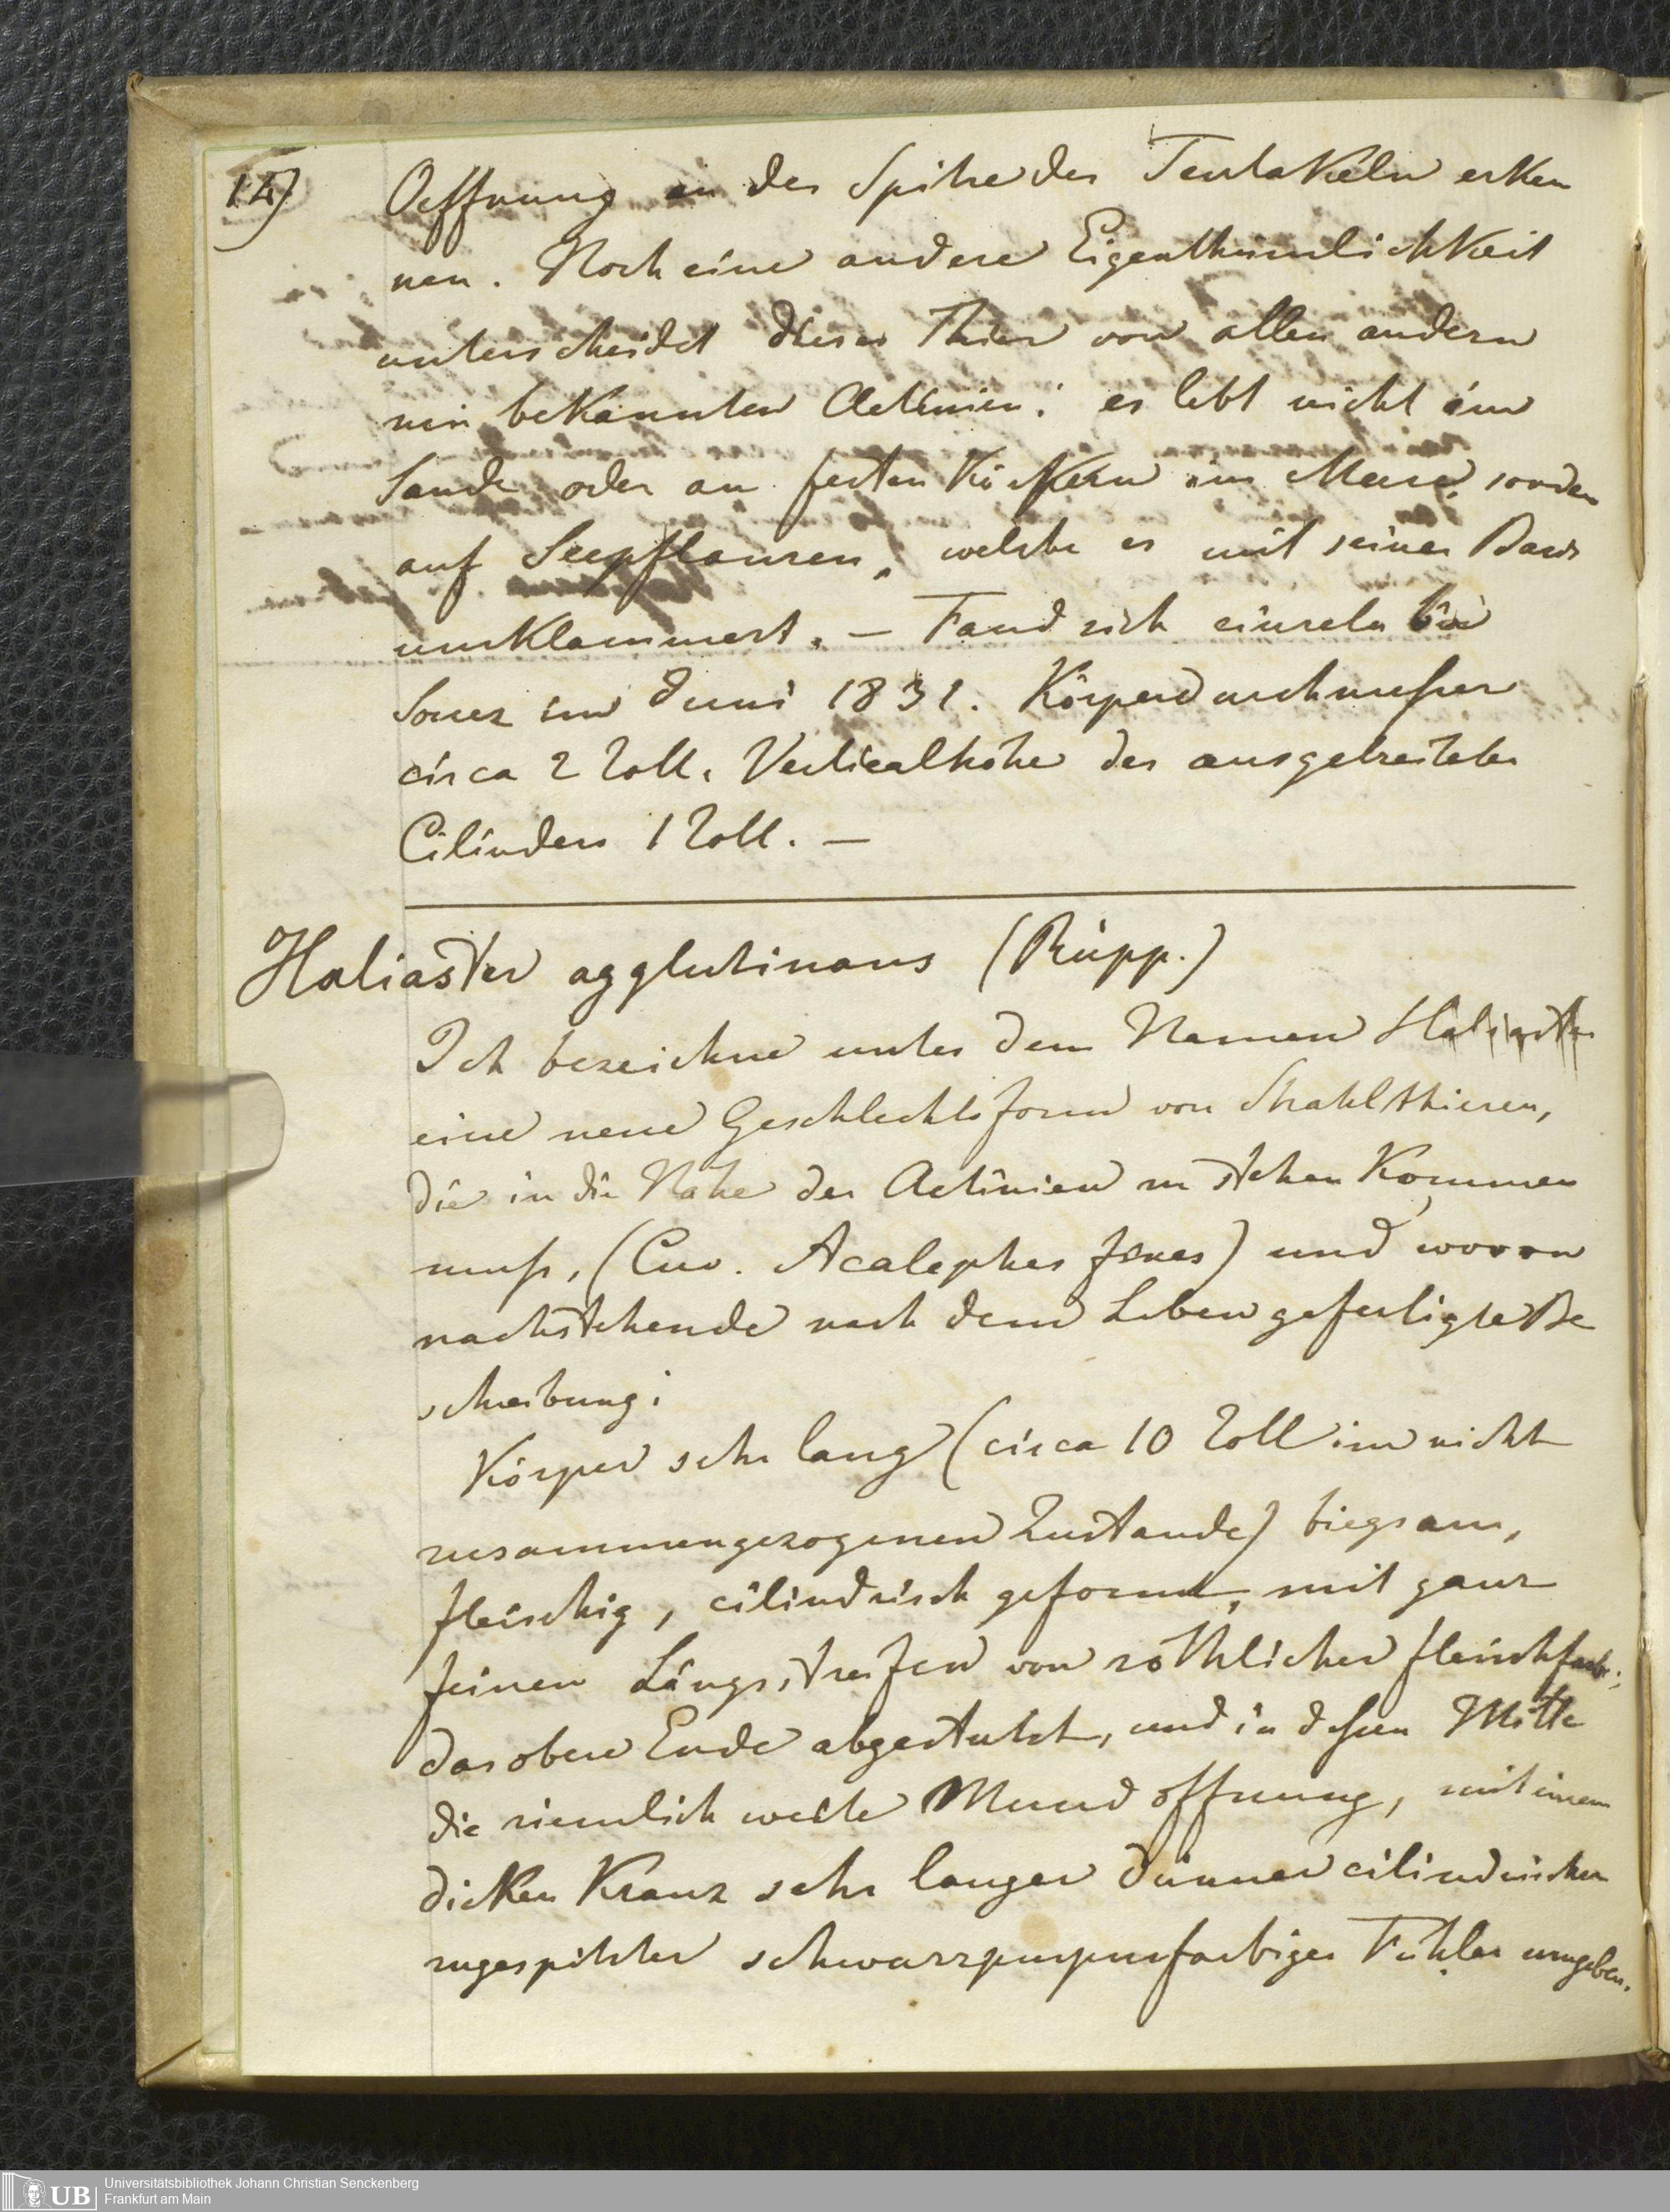 14)
Oeffnung an der Spitze der Tentakeln erken
nen. Noch eine andere Eigenthümlichkeit
unterscheidet dieses Thier von allen andern
mir bekannten Actinien: es lebt nicht im
Sande oder an festen Körpern im Meere, sondern
auf Seepflanzen, welche es mit seiner Basis
umklammert. — Fand sich einzeln bei
Souez im Juni 1831. Körperdurchmesser
circa 2 Zoll. Verticalhöhe des ausgebreiteten
Cilinders 1 Zoll. —
Haliaster agglutinans (Rüpp.)
Ich bezeichne unter dem Namen Haliaster
eine neue Geschlechtsform von Strahlthieren,
die in die Nähe der Actinien zu stehen kommen
muß, (Cuv. Acalephes fixes) und wovon
nachstehende nach dem Leben gefertigte Be
schreibung:
Körper sehr lang (circa 10 Zoll im nicht
zusammengezogenen Zustande) biegsam,
fleischig, cilindrisch geformt, mit ganz
feinen Längsstreifen von röthlicher fleischfarbe;
das obere Ende abgestutzt, und in deßen Mitte
die ziemlich weite Mundöffnung, mit einem
dicken Kranz sehr langer dünner cilindrischer
zugespitzter schwarzpurpurfarbiger Fühler umgeben.
UB
Universitätsbibliothek Johann Christian Senckenberg
Frankfurt am Main